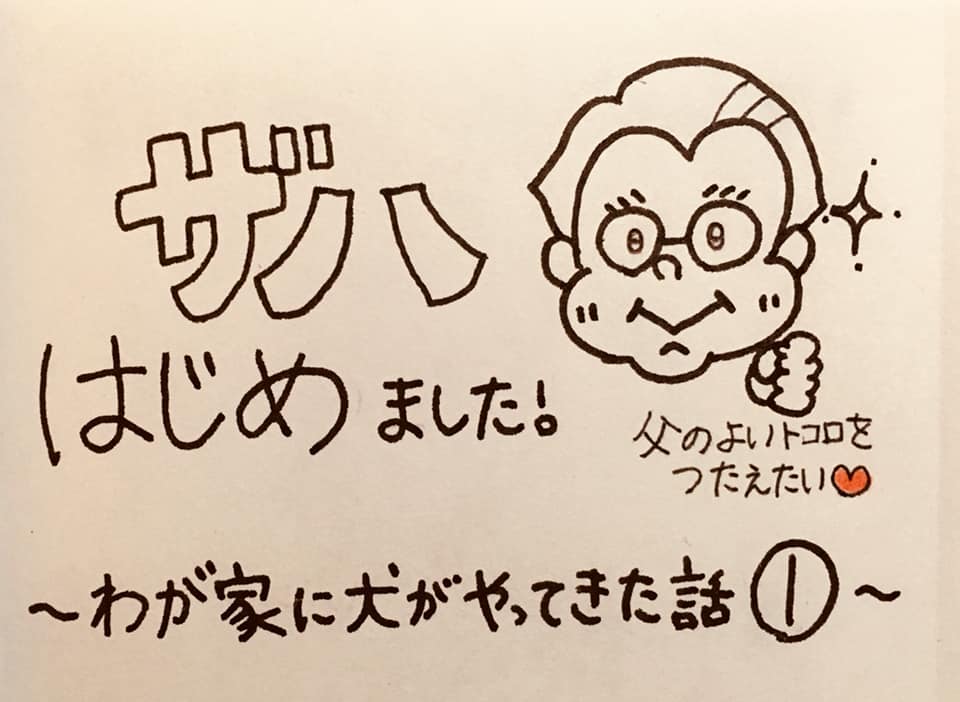 ザハ
はじめました!
父のよいトコロを
つたえたい♥
～わが家に犬がやってきた話①～